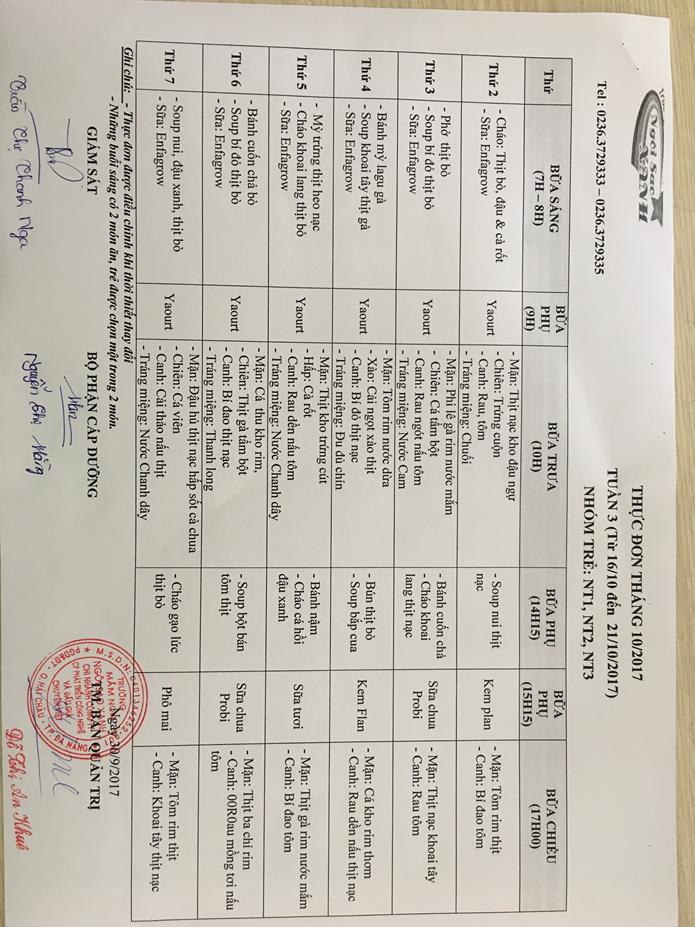 Ngôi Sao
XANH
Tel : 0236.3729333 – 0236.3729335
THỰC ĐƠN THÁNG 10/2017
TUẦN 3 (Từ 16/10 đến 21/10/2017)
NHÓM TRẺ: NT1, NT2, NT3
Thứ
BỮA SÁNG
(7H – 8H)
BỮA
PHỤ
(9H)
BỮA TRƯA
(10H)
BỮA PHỤ
(14H15)
BỮA
PHỤ
(15H15)
BỮA CHIỀU
(17H00)
Thứ 2
- Cháo: Thịt bò, đậu & cà rốt
- Sữa: Enfagrow
Yaourt
- Mặn: Thịt nạc kho đậu ngự
- Chiên: Trứng cuộn
- Canh: Rau, tôm
- Tráng miệng: Chuối
- Soup nui thịt
nạc
Kem plan
- Mặn: Tôm rim thịt
- Canh: Bí đao tôm
Thứ 3
- Phở thịt bò
- Soup bí đỏ thịt bò
- Sữa: Enfagrow
Yaourt
- Mặn: Phi lê gà rim nước mắm
- Chiên: Cá tẩm bột
- Canh: Rau ngót nấu tôm
- Tráng miệng: Nước Cam
- Bánh cuốn chả
- Cháo khoai
lang thịt nạc
Sữa chua
Probi
- Mặn: Thịt nạc khoai tây
- Canh: Rau tôm
Thứ 4
- Bánh mỳ lagu gà
- Soup khoai tây thịt gà
- Sữa: Enfagrow
Yaourt
- Mặn: Tôm rim nước dừa
- Xào: Cải ngọt xào thịt
- Canh: Bí đỏ thịt nạc
- Tráng miệng: Đu đủ chín
- Bún thịt bò
- Soup bắp cua
Kem Flan
- Mặn: Cá kho rim thơm
- Canh: Rau dền nấu thịt nạc
Thứ 5
- Mỳ trứng thịt heo nạc
- Cháo khoai lang thịt bò
- Sữa: Enfagrow
Yaourt
- Mặn: Thịt kho trứng cút
- Hấp: Cà rốt
- Canh: Rau dền nấu tôm
- Tráng miệng: Nước Chanh dây
- Bánh nậm
- Cháo cá hồi
đậu xanh
Sữa tươi
- Mặn: Thịt gà rim nước mắm
- Canh: Bí đao tôm
Thứ 6
- Bánh cuốn chả bò
- Soup bí đỏ thịt bò
- Sữa: Enfagrow
Yaourt
- Mặn: Cá thu kho rim,
- Chiên: Thịt gà tẩm bột
- Canh: Bí đao thịt nạc
- Tráng miệng: Thanh long
- Soup bột bán
tôm thịt
Sữa chua
Probi
- Mặn: Thịt ba chỉ rim
- Canh: 00R0au mồng tơi nấu
tôm
Thứ 7
- Soup nui, đậu xanh, thịt bò
- Sữa: Enfagrow
Yaourt
- Mặn: Đậu hủ thịt nạc hấp sốt cà chua
- Chiên: Cá viên
- Canh: Cải thảo nấu thịt
- Tráng miệng: Nước Chanh dây
- Cháo gạo lức
thịt bò
Phô mai
- Mặn: Tôm rim thịt
- Canh: Khoai tây thịt nạc
Ghi chú: - Thực đơn được điều chỉnh khi thời thiết thay đổi
- Những buổi sáng có 2 món ăn, trẻ được chọn một trong 2 món.
Ngày 30/9/2017
GIÁM SÁT
BỘ PHẬN CẤP DƯỠNG
TM. BAN QUẢN TRỊ
Trần Thị Thanh Nga
Nguyễn Thị Hằng
Đỗ Thị An Khuê
TRƯỜNG
MẦM NON
CP PHÁT TRIỂN CÔNG NGHỆ
Q. HẢI CHÂU - TP. ĐÀ NẴNG